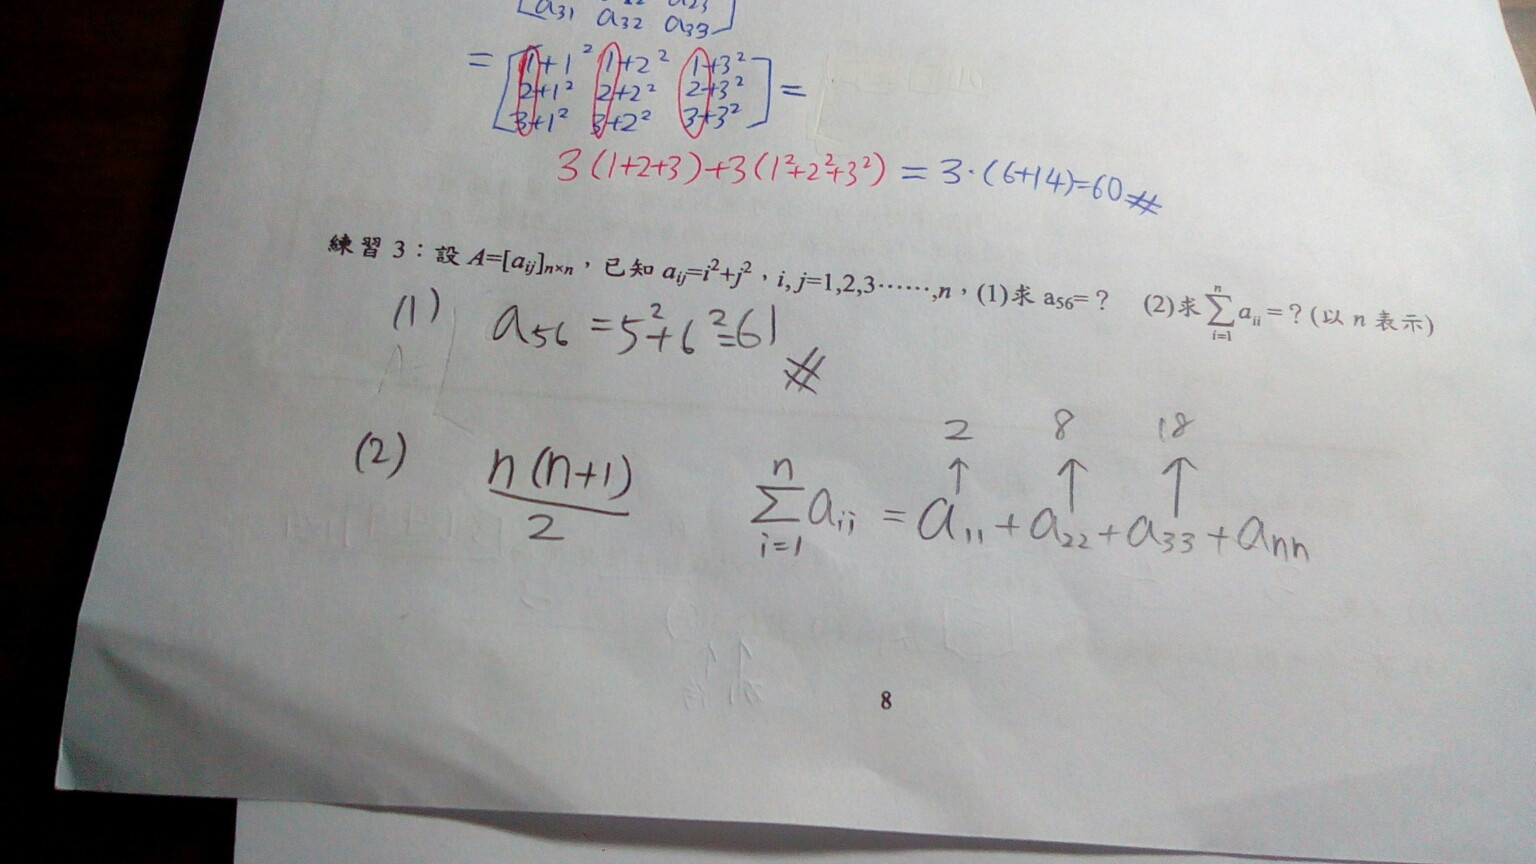 a₃₁ a₃₂ a₃₃
= [1+1² 1+2² 1+3²
2+1² 2+2² 2+3²
3+1² 3+2² 3+3²] =
3(1+2+3)+3(1²+2²+3²) = 3·(6+14)=60#
練習 3：設 A=[aᵢⱼ]ₙₓₙ，已知 aᵢⱼ=i²+j²，i, j=1,2,3……,n，(1)求 a₅₆=？ (2)求 \sum_{i=1}^{n} aᵢᵢ =？(以 n 表示)
(1) a₅₆ = 5²+6²=61 #
2 8 18
↑ ↑ ↑
(2) \frac{n(n+1)}{2} \sum_{i=1}^{n} aᵢᵢ = a₁₁+a₂₂+a₃₃+aₙₙ
8